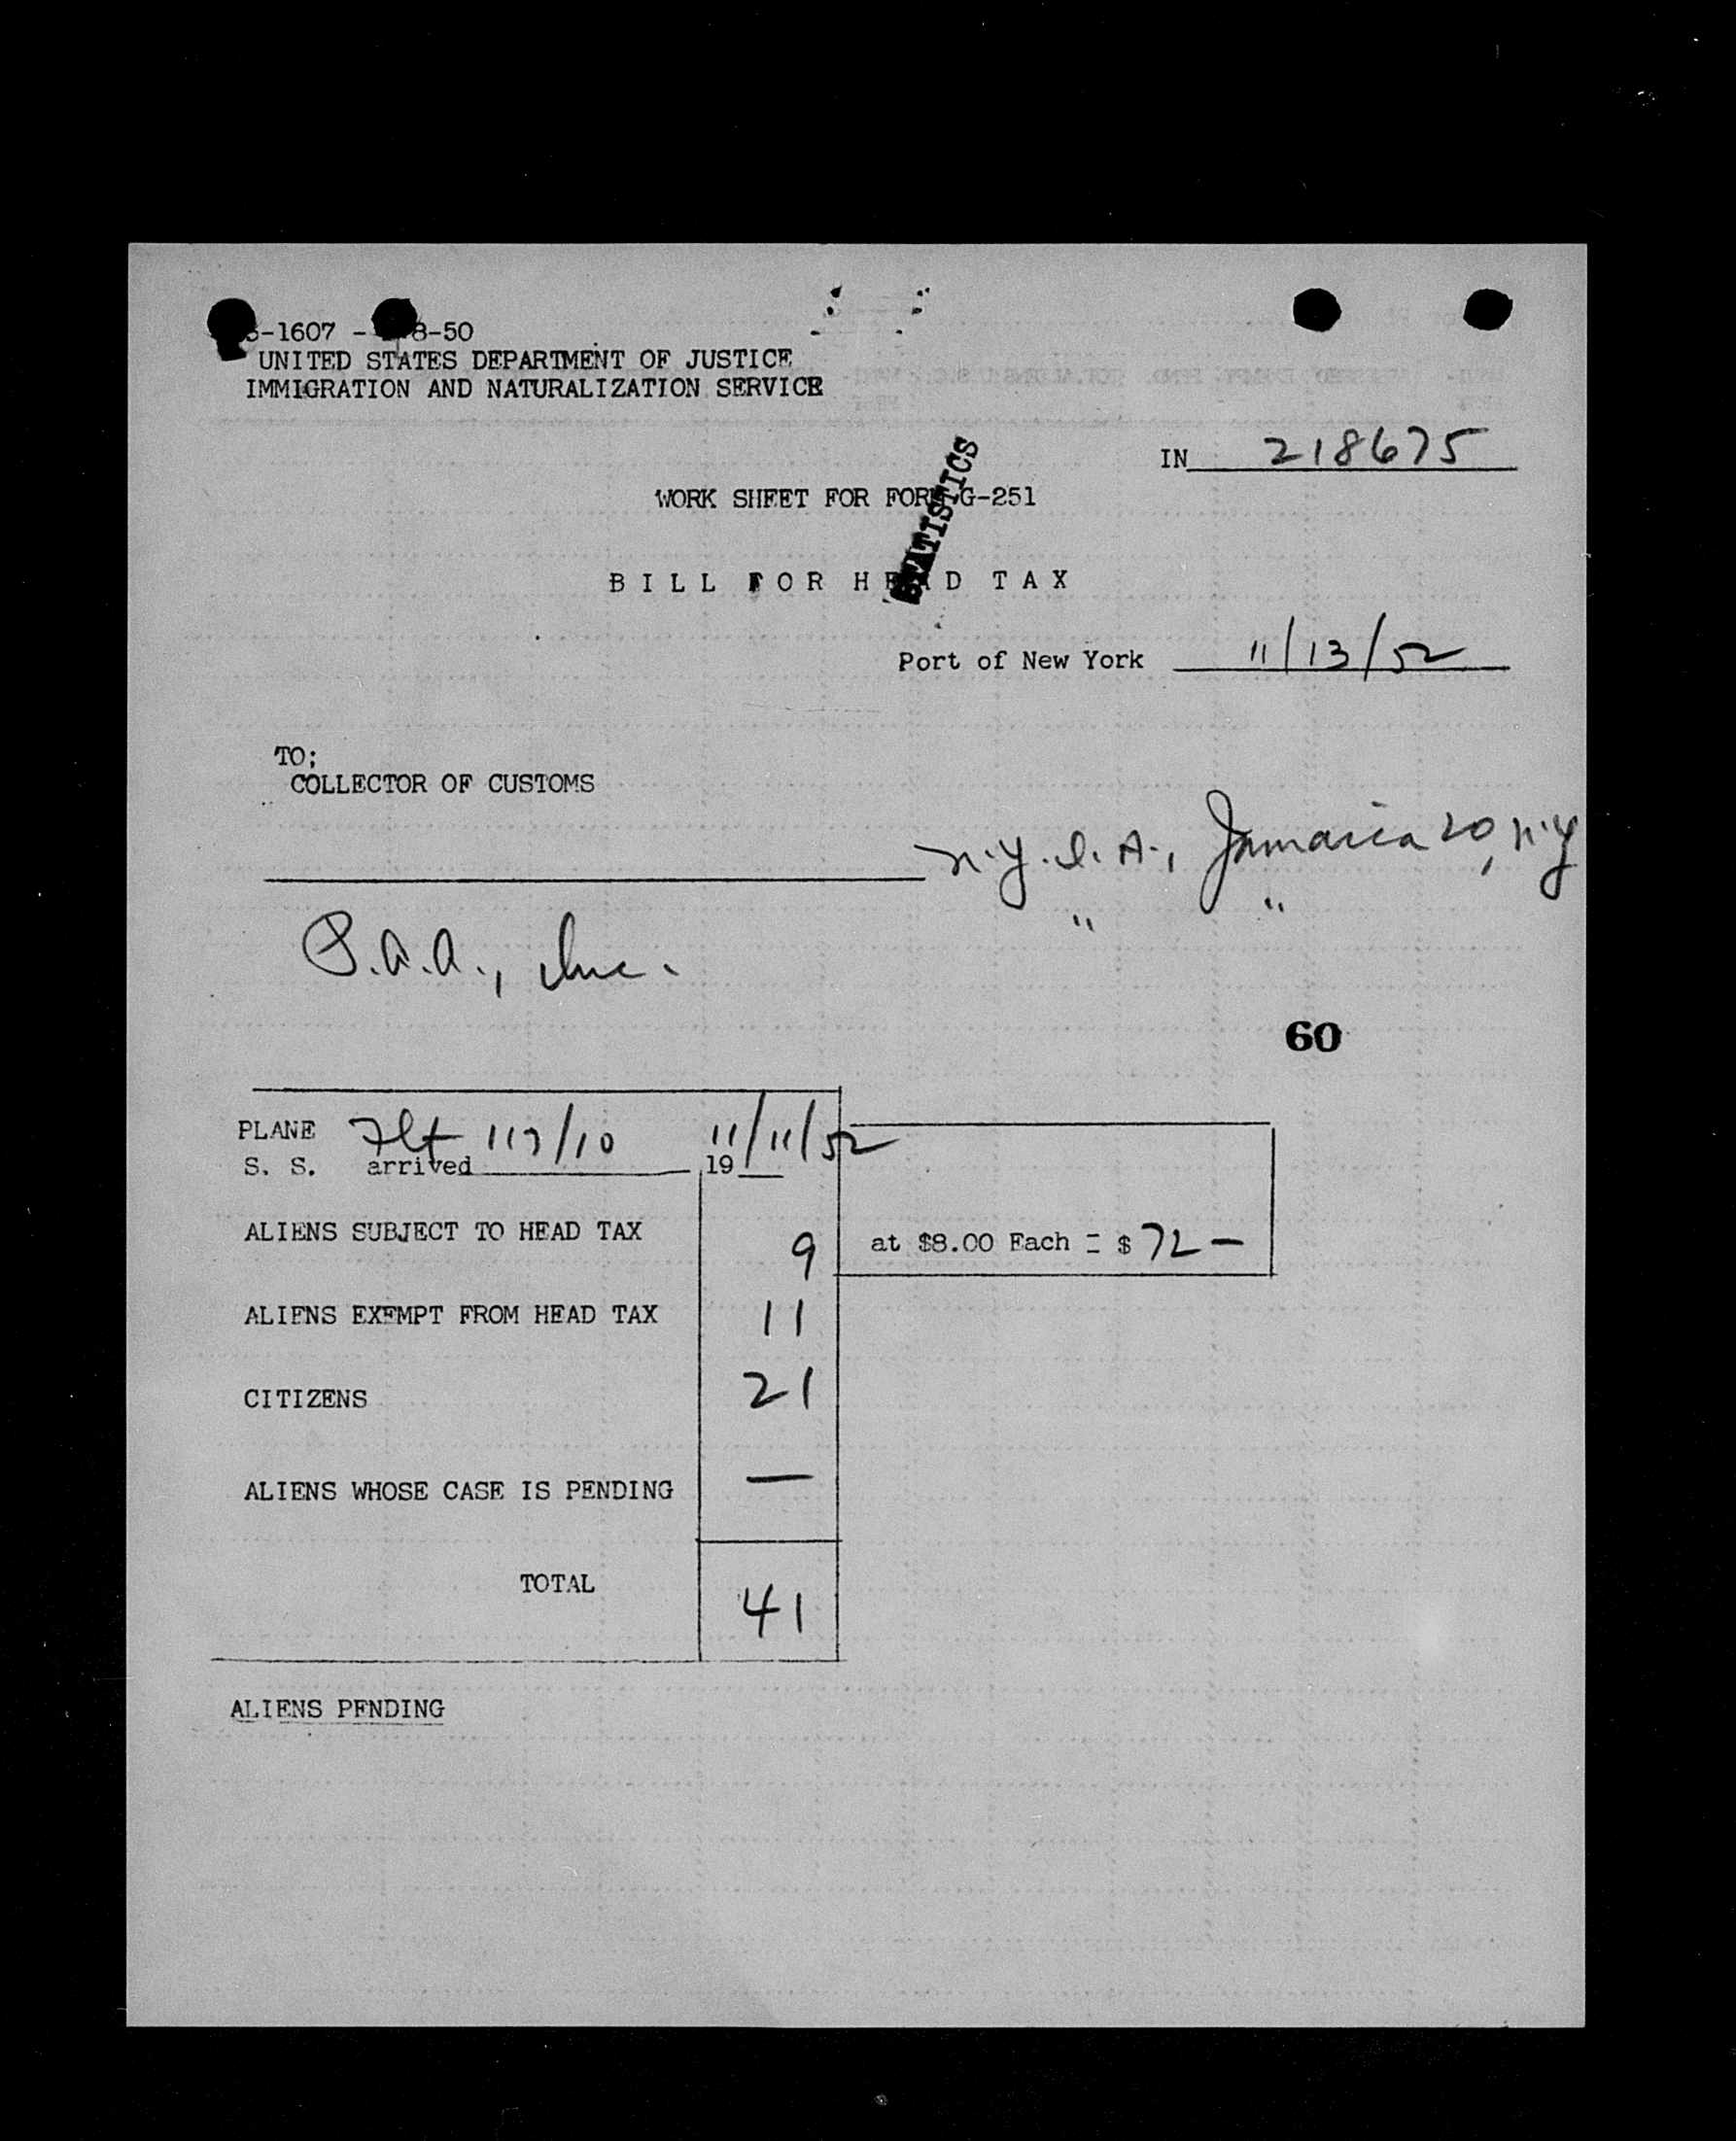 -1607 - 8-50
UNITED STATES DEPARTMENT OF JUSTICE
IMMIGRATION AND NATURALIZATION SERVICE
IN 218675
STATISTICS
WORK SHEET FOR FORM G-251
BILL FOR HEAD TAX
Port of New York 11/13/52
TO;
COLLECTOR OF CUSTOMS
N.Y.I.A., Jamaica 20, N.Y
" "
P.A.A., Inc.
60
PLANE Flt 117/10 11/11/52
S. S. arrived 19
ALIENS SUBJECT TO HEAD TAX 9 at $8.00 Each = $ 72 —
ALIENS EXEMPT FROM HEAD TAX 11
CITIZENS 21
ALIENS WHOSE CASE IS PENDING —
TOTAL 41
ALIENS PENDING